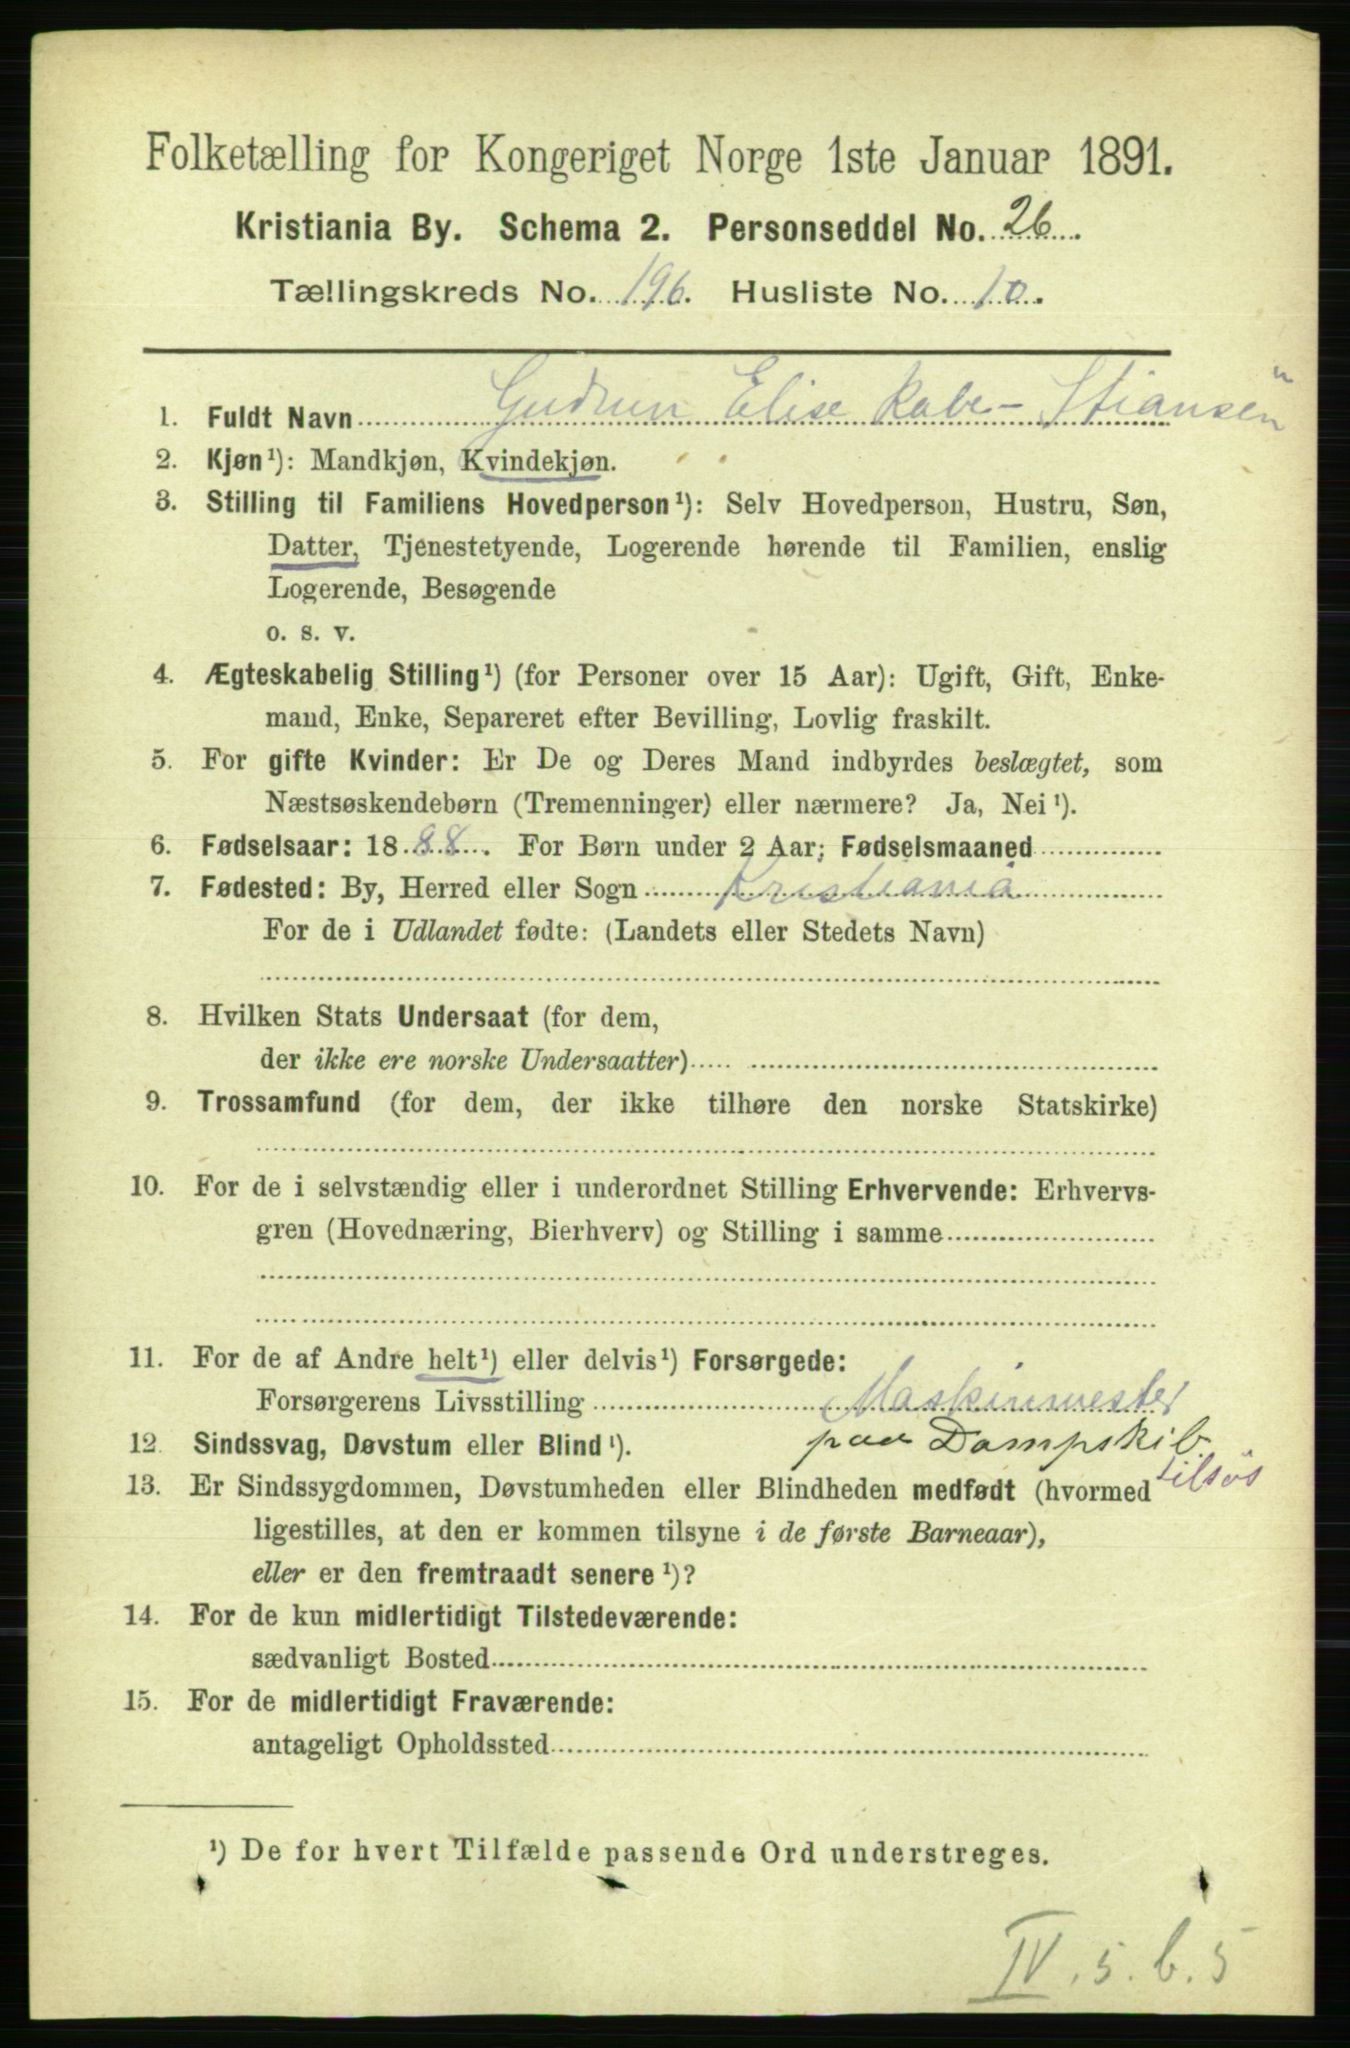 Folketælling for Kongeriget Norge 1ste Januar 1891.
Kristiania By. Schema 2. Personseddel No. 26.
Tællingskreds No. 196. Husliste No. 10.
1. Fuldt Navn Gudrun Elise Rabe-Stiansen
2. Kjøn¹): Mandkjøn, Kvindekjøn.
3. Stilling til Familiens Hovedperson¹): Selv Hovedperson, Hustru, Søn,
Datter, Tjenestetyende, Logerende hørende til Familien, enslig
Logerende, Besøgende
o. s. v.
4. Ægteskabelig Stilling¹) (for Personer over 15 Aar): Ugift, Gift, Enke-
mand, Enke, Separeret efter Bevilling, Lovlig fraskilt.
5. For gifte Kvinder: Er De og Deres Mand indbyrdes beslægtet, som
Næstsøskendebørn (Tremenninger) eller nærmere? Ja, Nei¹).
6. Fødselsaar: 1888. For Børn under 2 Aar; Fødselsmaaned
7. Fødested: By, Herred eller Sogn Kristiania
For de i Udlandet fødte: (Landets eller Stedets Navn)
8. Hvilken Stats Undersaat (for dem,
der ikke ere norske Undersaatter)
9. Trossamfund (for dem, der ikke tilhøre den norske Statskirke)
10. For de i selvstændig eller i underordnet Stilling Erhvervende: Erhvervs-
gren (Hovednæring, Bierhverv) og Stilling i samme
11. For de af Andre helt¹) eller delvis¹) Forsørgede:
Forsørgerens Livsstilling Maskinmester
paa Dampskib
12. Sindssvag, Døvstum eller Blind¹).
tilsøs
13. Er Sindssygdommen, Døvstumheden eller Blindheden medfødt (hvormed
ligestilles, at den er kommen tilsyne i de første Barneaar),
eller er den fremtraadt senere¹)?
14. For de kun midlertidigt Tilstedeværende:
sædvanligt Bosted
15. For de midlertidigt Fraværende:
antageligt Opholdssted
¹) De for hvert Tilfælde passende Ord understreges.
IV. 5. b. 5